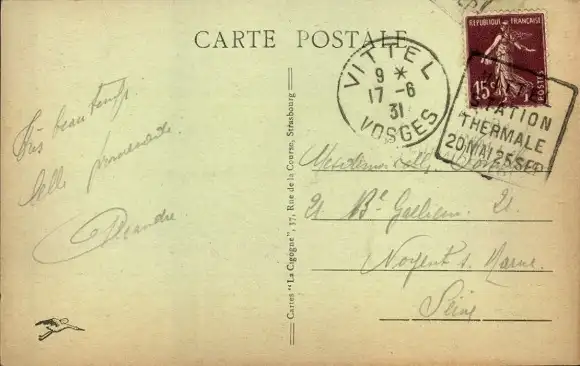 CARTE POSTALE
Très beau temps
belle promenade.
Cartes "La Cigogne", 37, Rue de la Course, Strasbourg
VITTEL
9 *
17-6
31
VOSGES
REPUBLIQUE FRANÇAISE
15c
POSTES
STATION
THERMALE
20 MAI 25 SEP
Mesdemoiselles
21 Bd Gallieni 21
Nogent s. Marne.
Seine